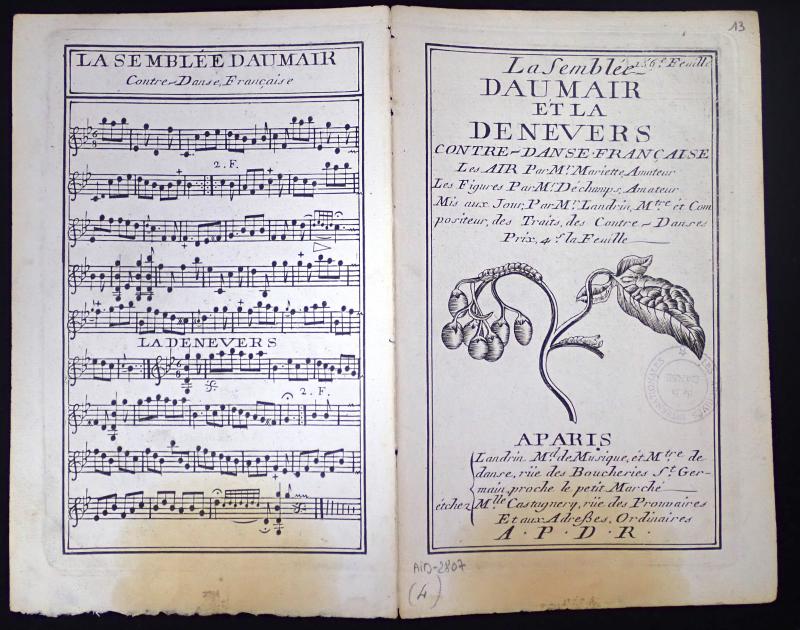 LA SEMBLÉE DAUMAIR
Contre-Danse, Française
2. F.
LA DENEVERS
2. F.
13
La Semblée 156.e Feuille
DAUMAIR
ET LA
DENEVERS
CONTRE-DANSE-FRANÇAISE
Les AIR Par Mr. Mariette, Amateur
Les Figures Par Mr. Déchamps, Amateur
Mis aux Jour, Par Mr. Landrin, Mtre et Com
positeur, des Traits, des Contre-Danses
Prix, 4 s. la Feuille
A PARIS
Landrin Md. de Musique, et Mtre de
danse, rüe des Boucheries St. Ger-
main, proche le petit Marché
et chez Mlle Castagnery, rüe des Prouvaires
Et aux Adreßes, Ordinaires
A. P. D. R.
AID-2807
(4)